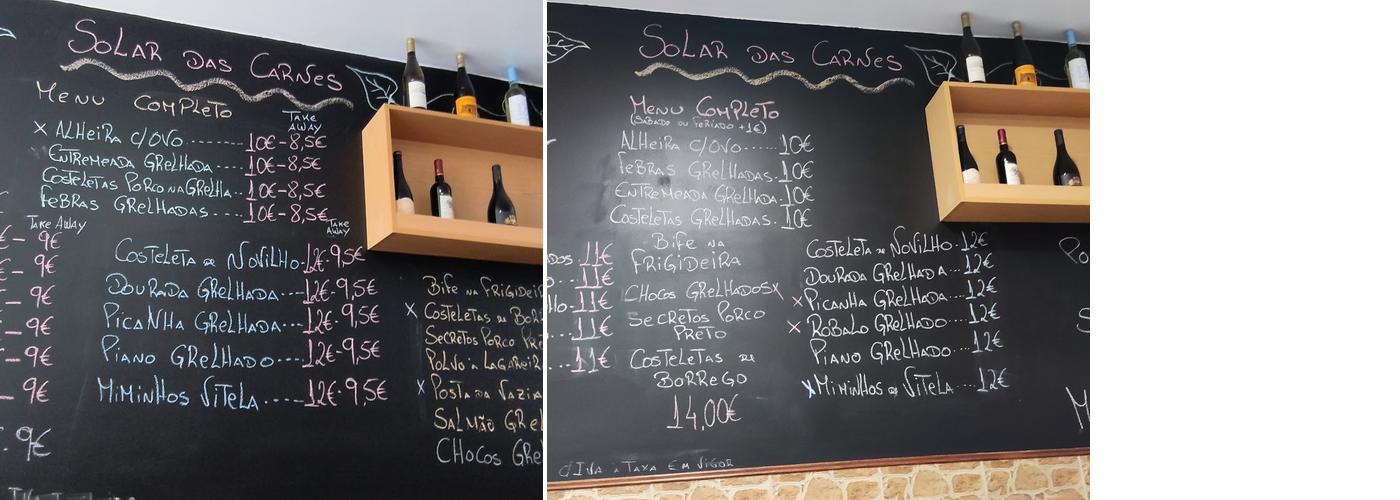 SOLAR DAS CARNES
MENU COMPLETO
TAKE AWAY
X ALHEIRA C/OVO ------- 10€ - 8,5€
ENTREMEADA GRELHADA .... 10€ - 8,5€
COSTELETAS PORCO NA GRELHA.. 10€ - 8,5€
FEBRAS GRELHADAS .... 10€ - 8,5€
TAKE AWAY
TAKE AWAY
€ - 9€
- 9€
- 9€
- 9€
- 9€
- 9€
. 9€
COSTELETA DE NOVILHO. 12€ - 9,5€
DOURADA GRELHADA --- 12€ - 9,5€
PICANHA GRELHADA --- 12€ - 9,5€
PIANO GRELHADO ---- 12€ - 9,5€
MIMINHOS VITELA ----- 12€ - 9,5€
BIFE NA FRIGIDEI
X COSTELETAS DE BOR
SECRETOS PORCO PR
POLVO À LAGAREIR
X POSTA DA VAZIA
SALMÃO GREL
CHOCOS GRE
SOLAR DAS CARNES
MENU COMPLETO
(SÁBADO OU FERIADO +1€)
ALHEIRA C/OVO ...... 10€
FEBRAS GRELHADAS. 10€
ENTREMEADA GRELHADA. 10€
COSTELETAS GRELHADAS. 10€
DOS. 11€
.. 11€
HO. 11€
... 11€
... 11€
BIFE NA
FRIGIDEIRA
CHOCOS GRELHADOS X
SECRETOS PORCO
PRETO
COSTELETAS DE
BORREGO
14,00€
COSTELETA DE NOVILHO. 12€
DOURADA GRELHADA ... 12€
X PICANHA GRELHADA ... 12€
X ROBALO GRELHADO ... 12€
PIANO GRELHADO .... 12€
X MIMINHOS DE VITELA .... 12€
PO
S
M
A TAXA EM VIGOR